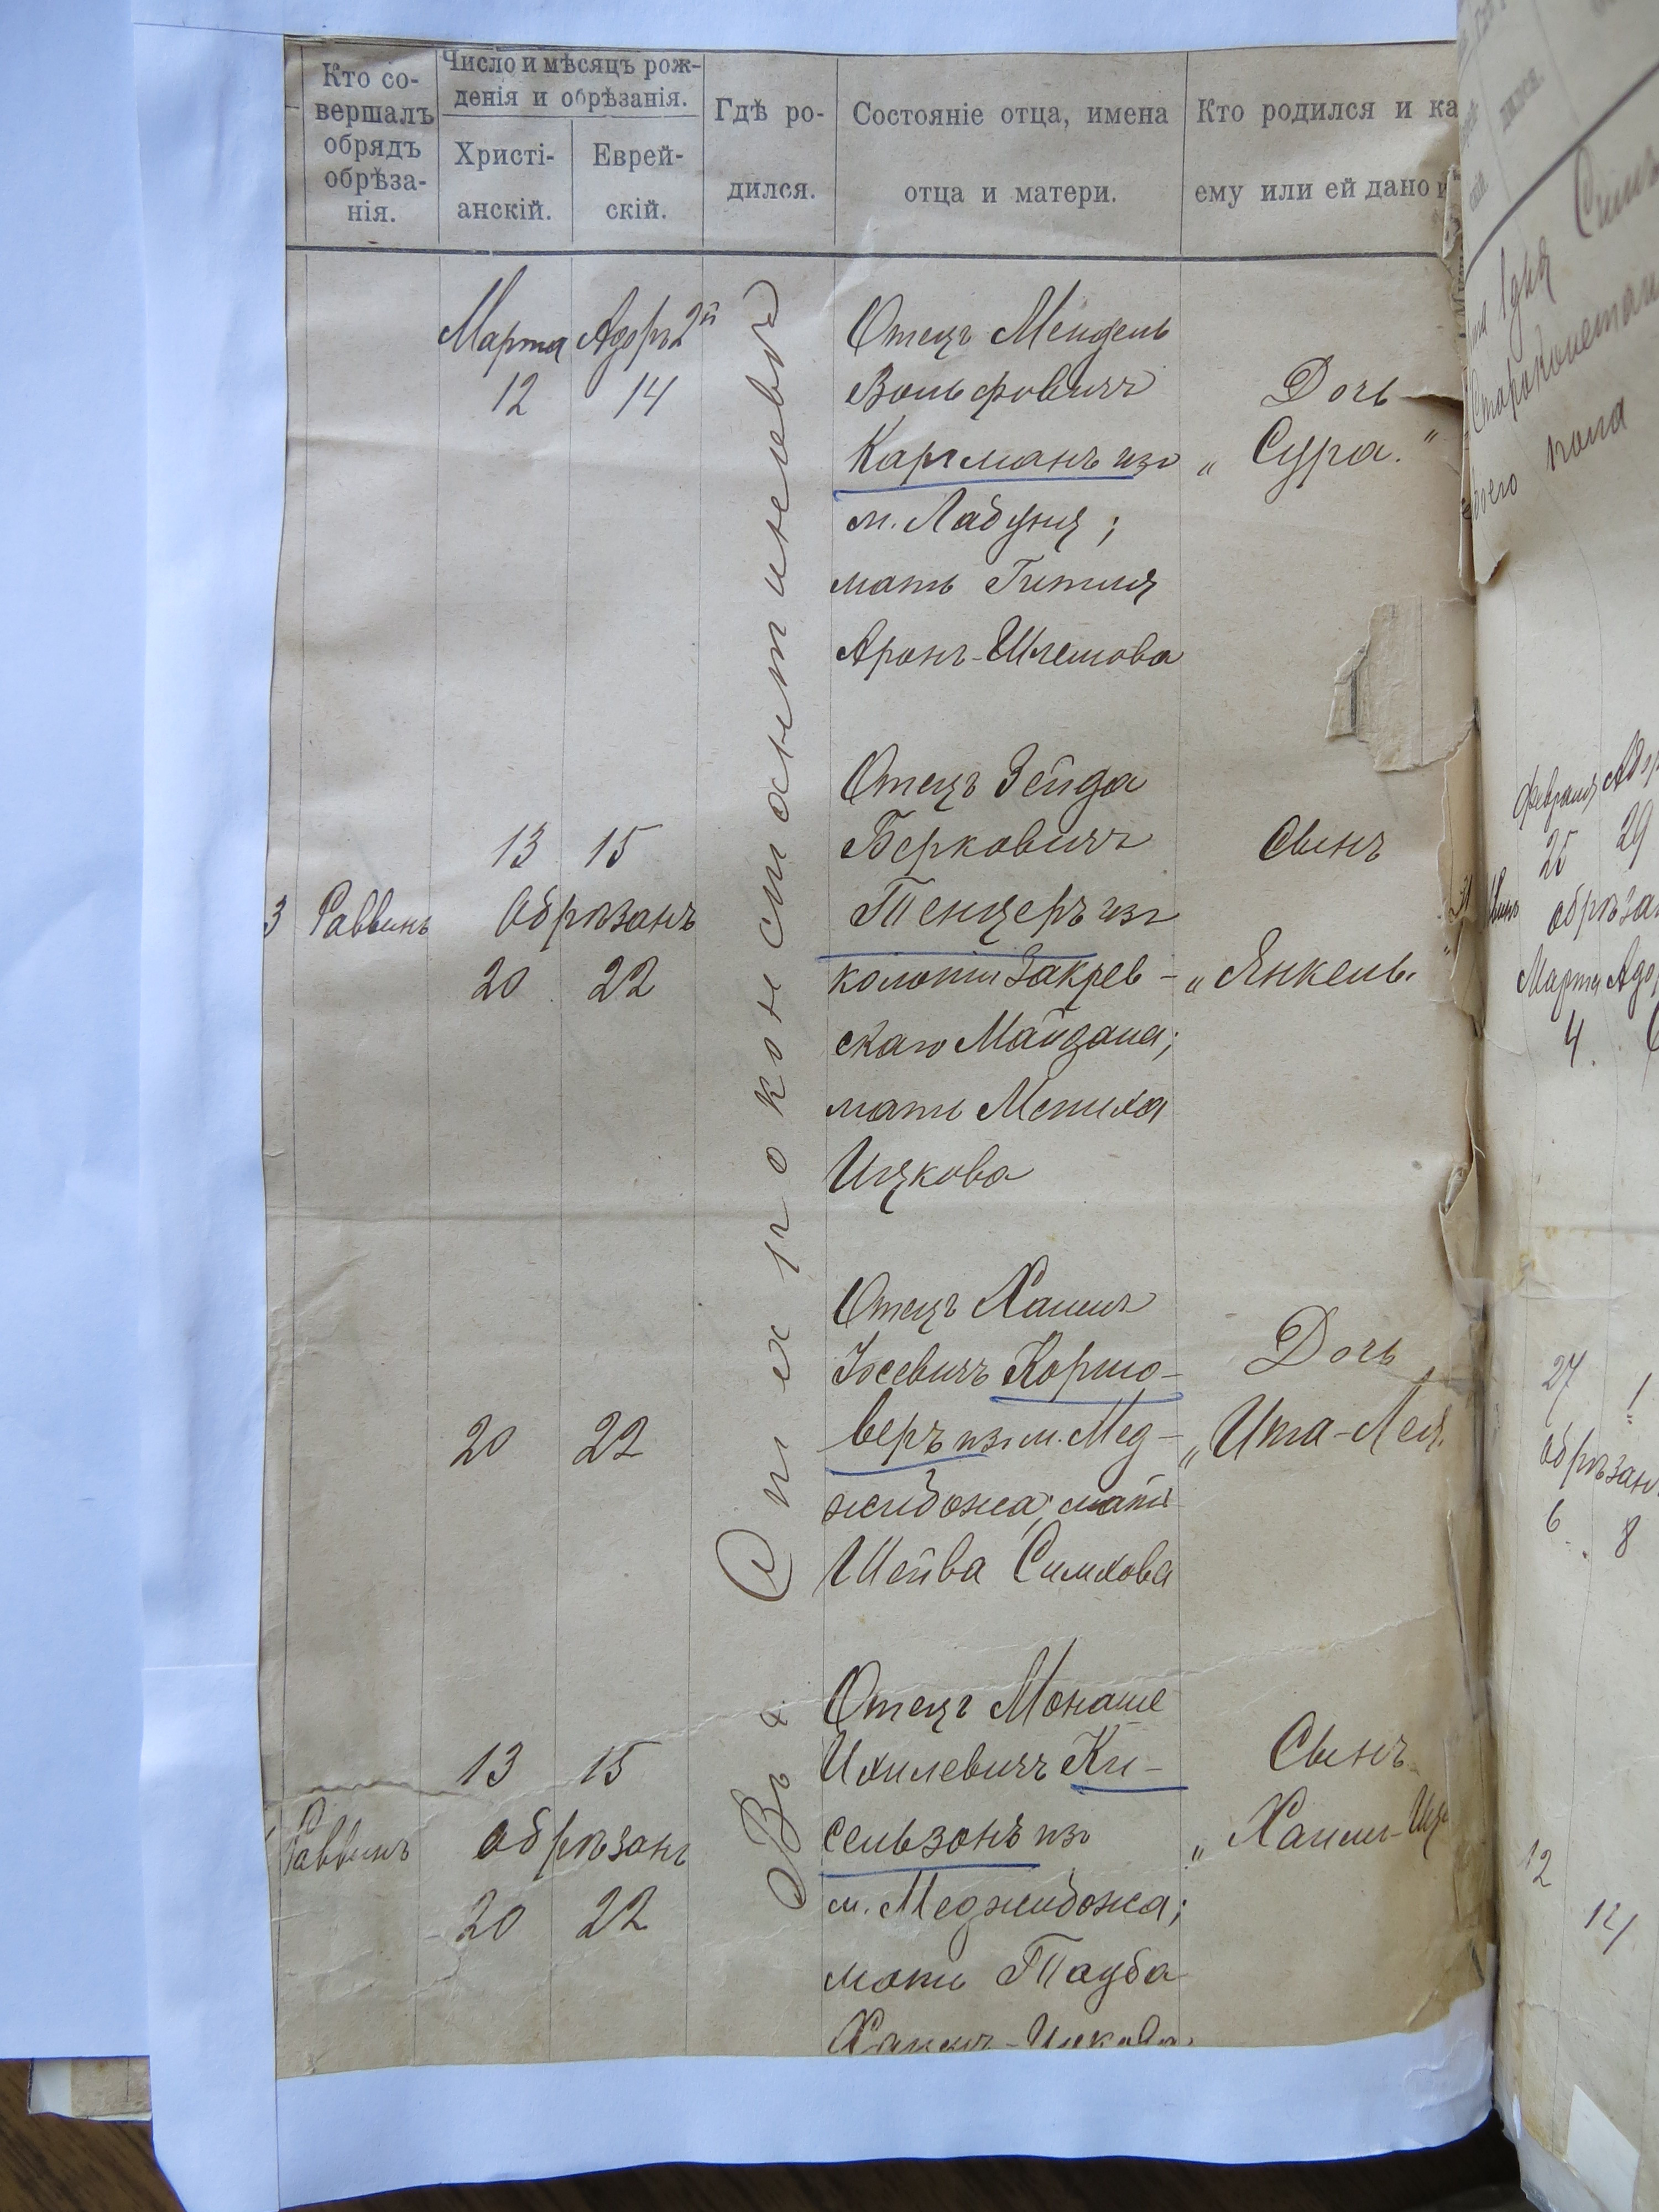 Кто со-
вершалъ
обрядъ
обрѣза-
нія.
Число и мѣсяцъ рож-
денія и обрѣзанія.
Христі-
анскій.
Еврей-
скій.
Гдѣ ро-
дился.
Состояніе отца, имена
отца и матери.
Кто родился и ка
ему или ей дано
Марта Адоръ 2й
12 14
Отецъ Мендель
Вольфовичъ
Каргманъ изъ
м. Лабуня;
мать Гитля
Аронъ-Шлемова
Дочь
„Сура.“
Въ г. Староконстантиновѣ
13 15
3 Раввинъ Обрѣзанъ
20 22
Отецъ Зейда
Берковичъ
Тенцеръ изъ
колоніи Закрев-
скаго Майдана;
мать Мениха
Ицкова
Сынъ
„Янкель.
20 22
Отецъ Хаимъ
Іосевичъ Коршо-
веръ изъ м. Мед-
жибожа; мать
Шейва Симхова
Дочь
„Ита-Лея.
13 15
Раввинъ обрѣзанъ
20 22
Отецъ Монаше
Ихилевичъ Ки-
сельзонъ изъ
м. Меджибожа;
мать Тауба
Хаимъ-Ицкова.
Сынъ
„Хаимъ-Иц
Староконстан
пола
Февраля Адор
25 29
обрѣзан
Марта Адор
4
27 1
обрѣзан
6 8
12
14